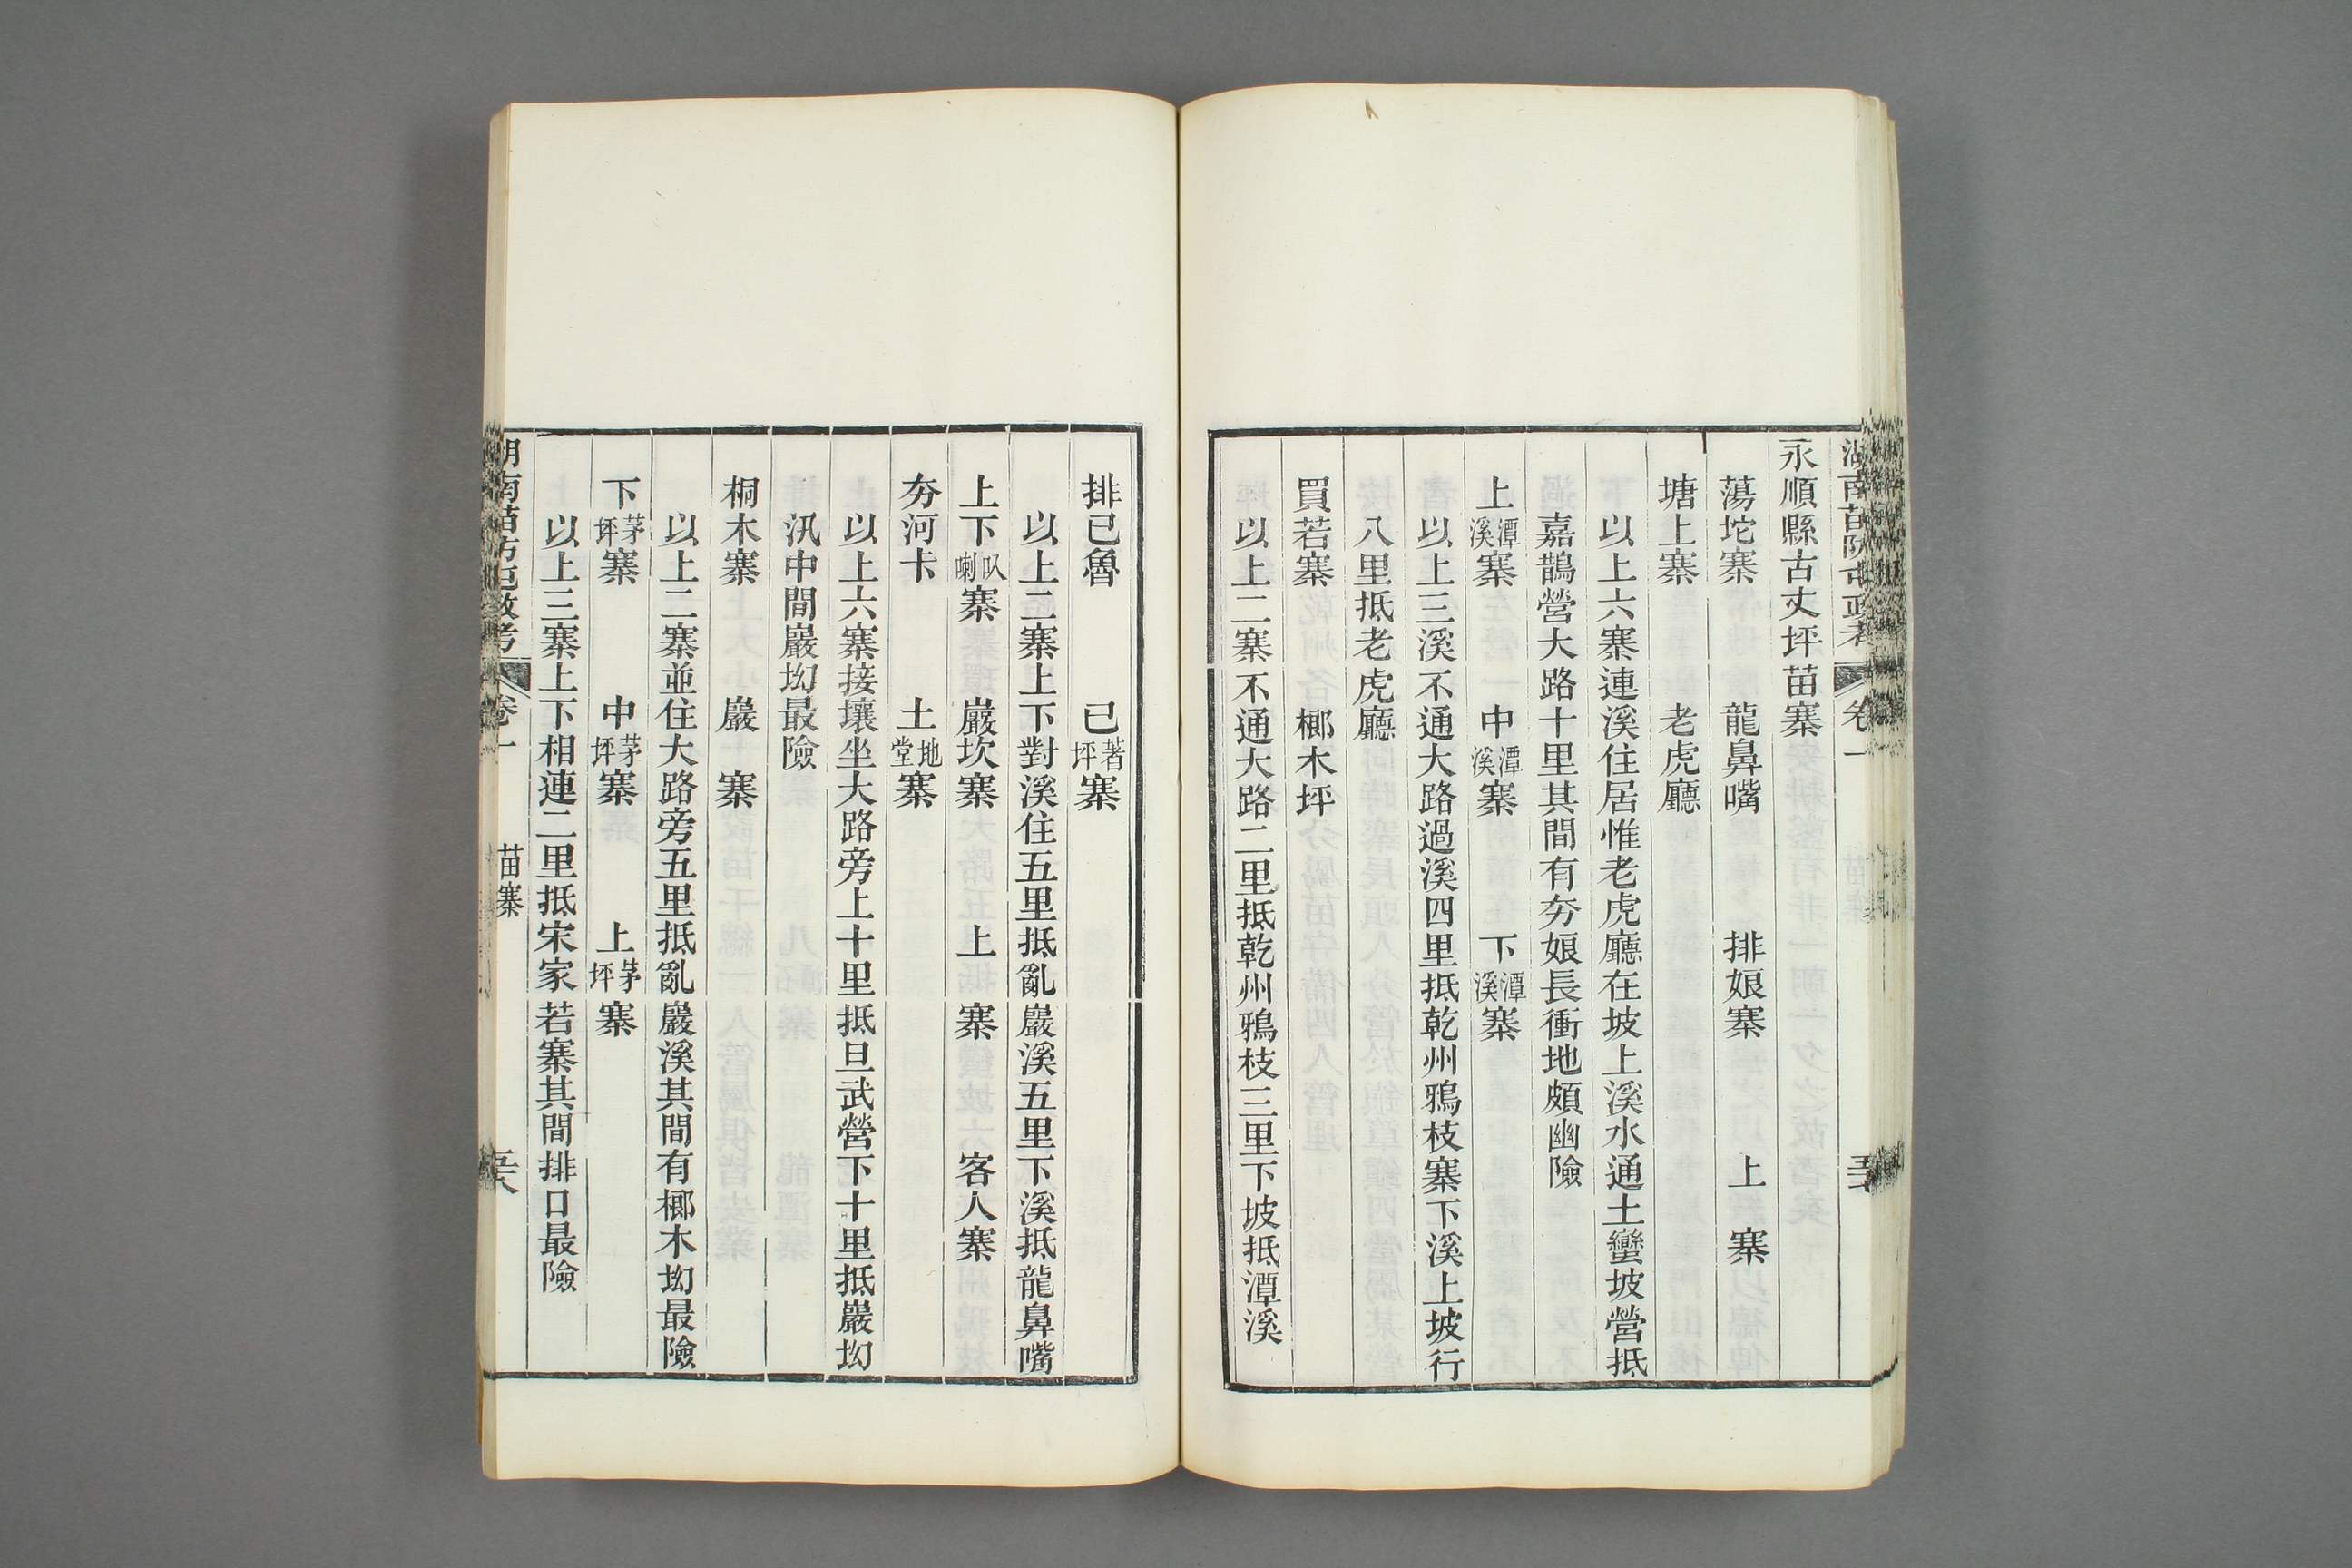 湖南苗防屯政考 卷一
永順縣古丈坪苗寨
蕩坨寨 龍鼻嘴 排娘寨 上寨
塘上寨 老虎廳
以上六寨連溪住居惟老虎廳在坡上溪水通土蠻坡營抵
嘉鵲營大路十里其間有夯娘長衝地頗幽險
上潭溪寨 中潭溪寨 下潭溪寨
以上三溪不通大路過溪四里抵乾州鴉枝寨下溪上坡行
八里抵老虎廳
買若寨 榔木坪
以上二寨不通大路二里抵乾州鴉枝三里下坡抵潭溪
排已魯 已著坪寨
以上二寨上下對溪住五里抵亂巖溪五里下溪抵龍鼻嘴
上下叭喇寨 巖坎寨 上寨 客人寨
夯河卡 土地堂寨
以上六寨接壤坐大路旁上十里抵旦武營下十里抵巖坳
汛中間巖坳最險
桐木寨 巖寨
以上二寨並住大路旁五里抵亂巖溪其間有榔木坳最險
下茅坪寨 中茅坪寨 上茅坪寨
以上三寨上下相連二里抵宋家若寨其間排口最險
湖南苗防屯政考 卷一 苗寨